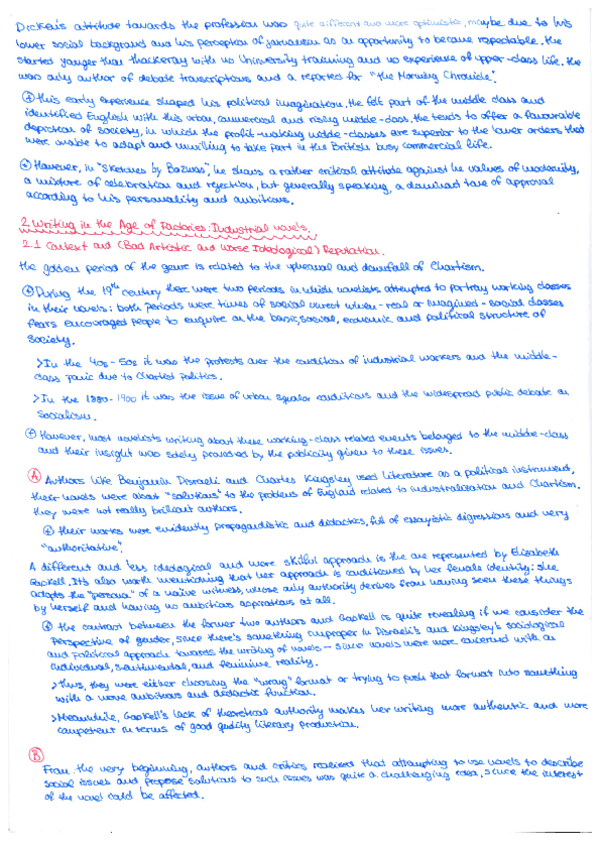 Dickens's attitude towards the profession was quite different and more optimistic, maybe due to his
lower social background and his perception of journalism as an opportunity to become respectable. He
started younger than Thackeray with no University training and no experience of upper-class life. He
was only author of debate transcriptions and a reporter for "the Morning Chronicle".
This early experience shaped his political imagination. He felt part of the middle class and
identified English with this urban, commercial and rising middle-class. He tends to offer a favourable
depiction of society, in which the profit-making middle-classes are superior to the lower orders that
were unable to adapt and unwilling to take part in the British busy commercial life.
However, in "Sketches by Boz", he shows a rather critical attitude against the values of modernity,
a mixture of celebration and rejection, but generally speaking, a dominant tone of approval
according to his personality and ambitions.
2. Writing in the Age of Factories: Industrial novels.
2.1 Context and (Bad Artistic and Worse Ideological) Reputation.
The golden period of the genre is related to the upheaval and downfall of Chartism.
During the 19th century there were two periods in which novelists attempted to portray working classes
in their novels: both periods were times of social unrest when - real or imagined - social classes
fears encouraged people to enquire on the basic social, economic and political structure of
society.
>In the 40s-50s it was the protests over the condition of industrial workers and the middle-
class panic due to Chartist politics.
>In the 1880-1900 it was the issue of urban squalor conditions and the widespread public debate on
Socialism.
However, most novelists writing about these working-class related events belonged to the middle-class
and their insight was solely provided by the publicity given to these issues.
A Authors like Benjamin Disraeli and Charles Kingsley used literature as a political instrument,
their novels were about "solutions" to the problems of England related to industrialization and Chartism.
they were not really brilliant authors.
their works were evidently propagandistic and didactics, full of essayistic digressions and very
"authoritative".
A different and less ideological and more skilful approach is the one represented by Elizabeth
Gaskell. It's also worth mentioning that her approach is conditioned by her female identity: she
adopts the "persona" of a naive witness, whose only authority derives from having seen these things
by herself and having no ambitious aspirations at all.
the contrast between the former two authors and Gaskell is quite revealing if we consider the
perspective of gender, since there's something improper in Disraeli's and Kingsley's sociological
and political approach towards the writing of novels — since novels were more concerned with an
individual, sentimental, and feminine reality.
>Thus, they were either choosing the "wrong" format or trying to push that format into something
with a more ambitious and didactic function.
>Meanwhile, Gaskell's lack of theoretical authority makes her writing more authentic and more
competent in terms of good quality literary production.
B
From the very beginning, authors and critics realised that attempting to use novels to describe
social issues and propose solutions to such issues was quite a challenging idea, since the interest
of the novel could be affected.